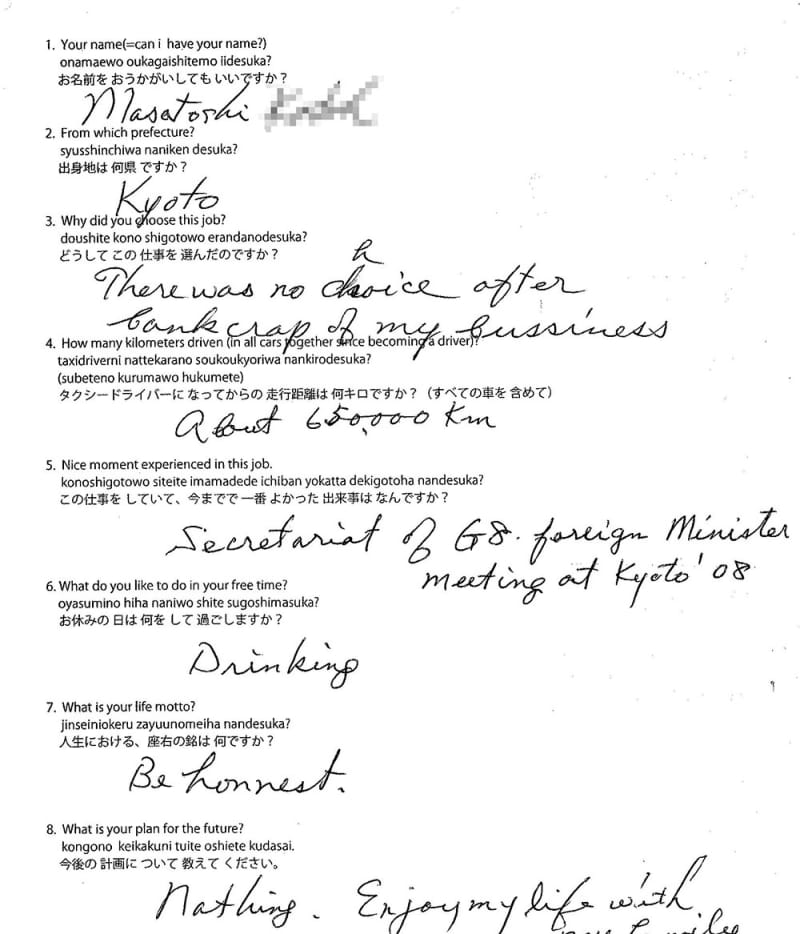 1. Your name(=can i have your name?)
onamaewo oukagaishitemo iidesuka?
お名前を おうかがいしても いいですか？
Masatoshi
2. From which prefecture?
syusshinchiwa naniken desuka?
出身地は 何県 ですか？
Kyoto
3. Why did you choose this job?
doushite kono shigotowo erandanodesuka?
どうして この 仕事を 選んだのですか？
h
There was no choice after
bank crap of my bussiness
4. How many kilometers driven (in all cars together since becoming a driver)?
taxidriverni nattekarano soukoukyoriwa nankirodesuka?
(subeteno kurumawo hukumete)
タクシードライバーに なってからの 走行距離は 何キロですか？（すべての車を 含めて）
About 650,000 Km
5. Nice moment experienced in this job.
konoshigotowo siteite imamadede ichiban yokatta dekigotoha nandesuka?
この仕事を していて、今までで 一番 よかった 出来事は なんですか？
Secretariat of G8. foreign Minister
meeting at Kyoto '08
6. What do you like to do in your free time?
oyasumino hiha naniwo shite sugoshimasuka?
お休みの 日は 何を して 過ごしますか？
Drinking
7. What is your life motto?
jinseiniokeru zayuunomeiha nandesuka?
人生における、座右の銘は 何ですか？
Be honnest.
8. What is your plan for the future?
kongono keikakuni tuite oshiete kudasai.
今後の 計画に ついて 教えて ください。
Nothing. Enjoy my life with